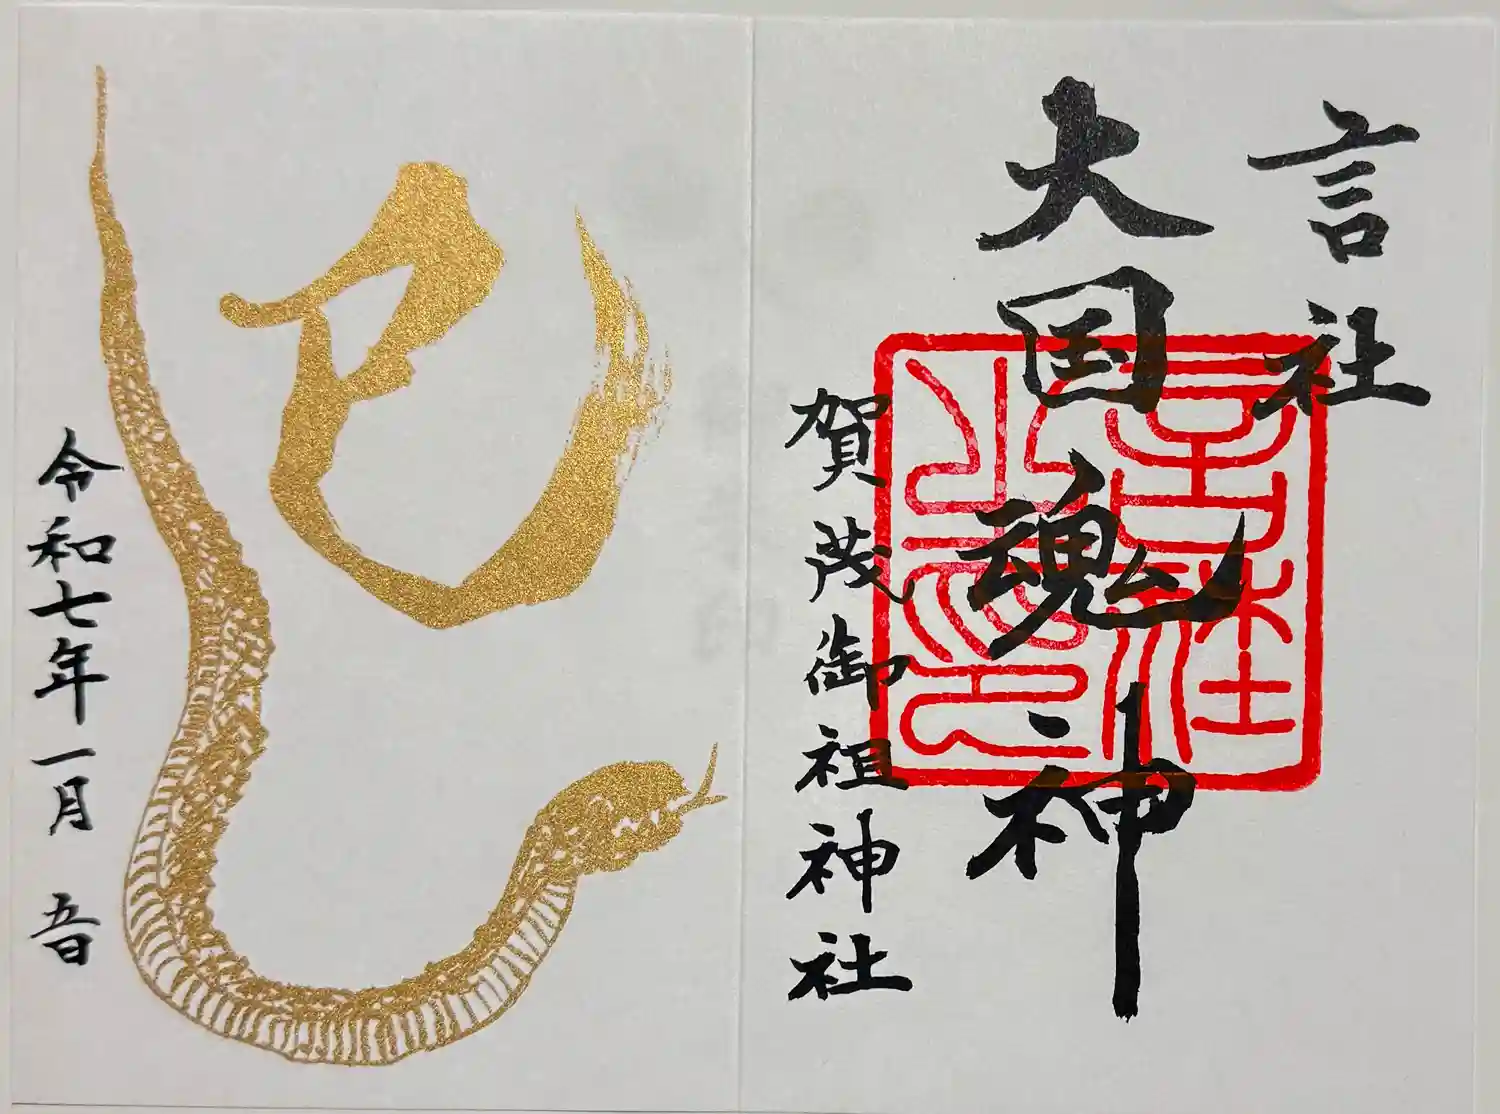 言社
大国魂神
言社之印
賀茂御祖神社
巳
令和七年一月 五日